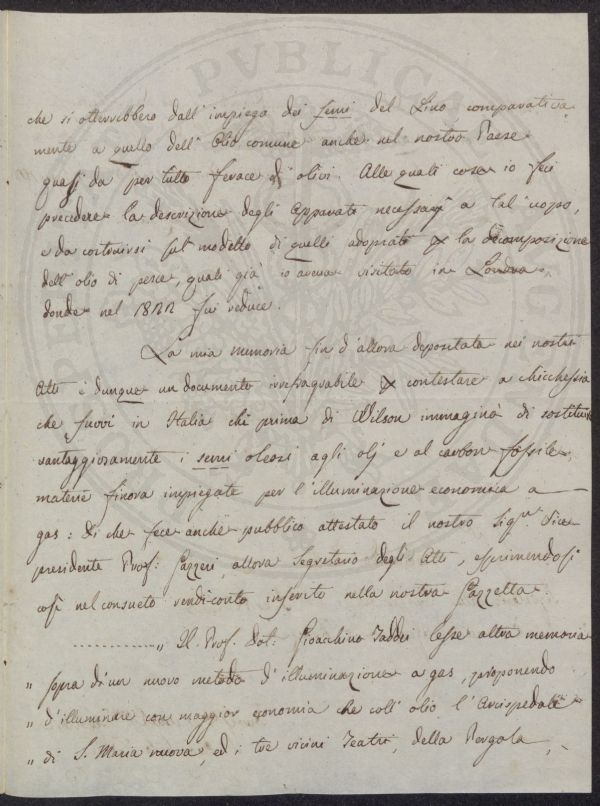 che si otterrebbero dall'impiego dei semi del Lino comparativa-
mente a quello dell'Olio comune anche nel nostro Paese
quasi da per tutto ferace di olivi. Alle quali cose io feci
precedere la descrizione degli apparati necessarj a tal uopo,
e da costruirsi sul modello di quelli adoprati per la decomposizione
dell'olio di pesce, quali già io aveva visitato in Londra,
donde nel 1822 fui reduce.
La mia memoria fin d'allora depositata nei nostri
Atti è dunque un documento irrefragabile per contestare a chicchessia
che fuvvi in Italia chi prima di Wilson immaginò di sostituire
vantaggiosamente i semi oleosi agli olj e al carbon fossile,
materie finora impiegate per l'illuminazione economica a
gas: di che fece anche pubblico attestato il nostro Sigr. Vice
presidente Prof: Gazzeri, allora Segretario degli Atti, esprimendosi
così nel consueto rendiconto inserito nella nostra Gazzetta.
.............„ Il Prof. Dot: Gioacchino Taddei lesse altra memoria
„ sopra di un nuovo metodo d'illuminazione a gas, proponendo
„ d'illuminare con maggior economia che coll'olio l'Arcispedale
„ di S. Maria nuova, ed i tre vicini Teatri, della Pergola,